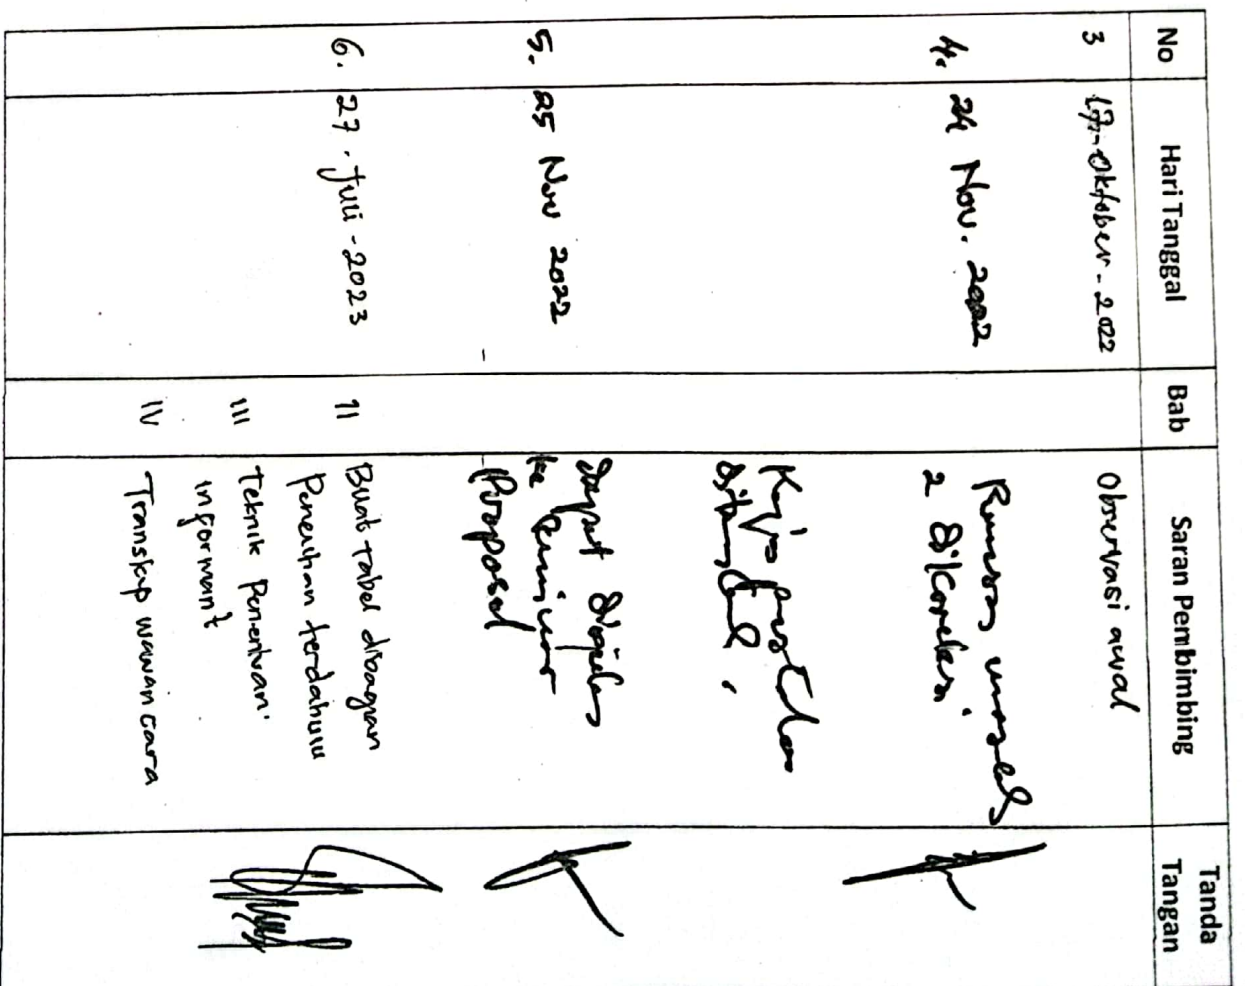 No Hari Tanggal Bab Saran Pembimbing Tanda
Tangan
3 17-Oktober-2022 Observasi awal
4. 24 Nov. 2022 Rumusan masalah
2 dikoreksi.
Kajian
5. 25 Nov 2022 dapat diajukan
ke seminar
Proposal
6. 27-Juli-2023 II Buat tabel dibagian
Penelitian terdahulu
III Teknik Penentuan
informant
IV Transkip wawancara